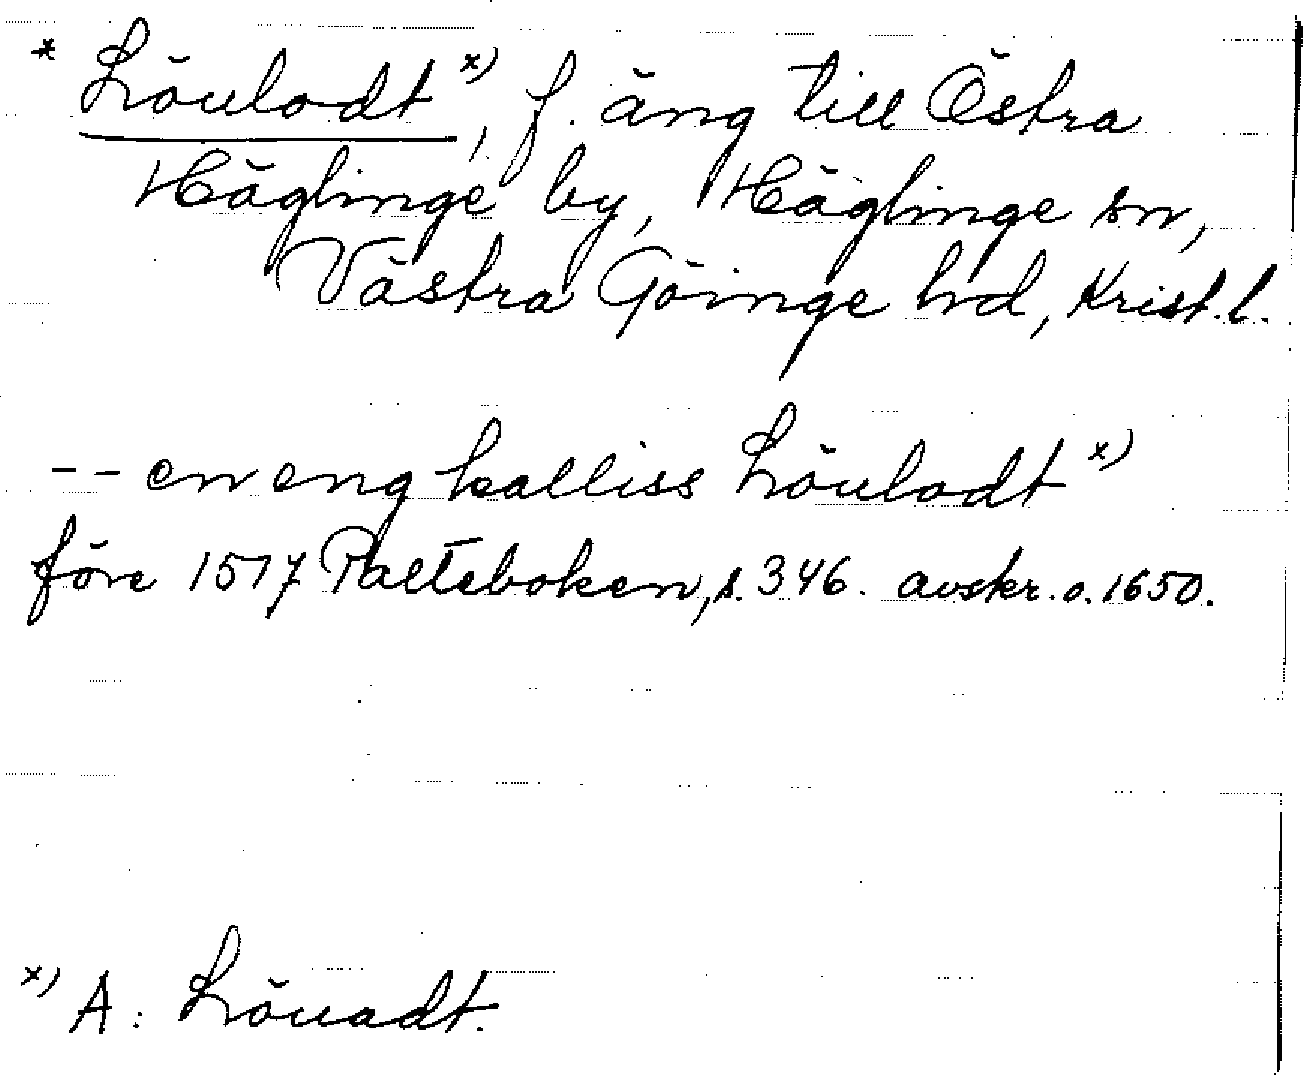 * Löulodt x), f. äng till Östra
Häglinge by, Häglinge sn,
Västra Göinge hd, Krist.l.
-- en eng kalliss Löulodt x)
före 1517 Palteboken, s. 346. avskr. o. 1650.
x) A: Löuadt.